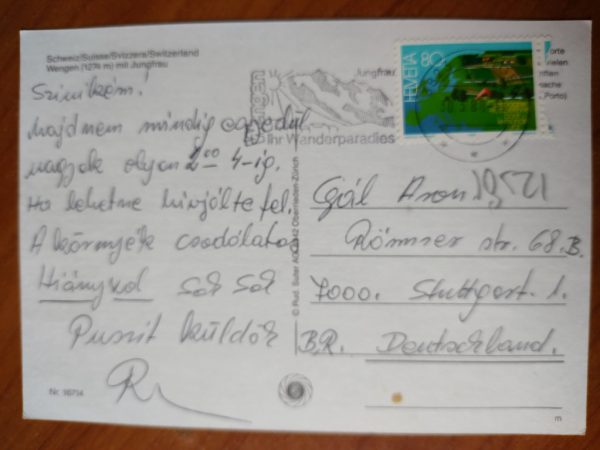 Schweiz/Suisse/Svizzera/Switzerland
Wengen (1276 m) mit Jungfrau
majdnem mindig egyedül
vagyok olyan 2⁰⁰ 4-ig.
Ha lehetne hívjál fel.
A környék csodálatos
Hiányzol sok sok
Puszit küldök
R
Nr. 16714
Wengen
Jungfrau
Ihr Wanderparadies
HELVETIA 80
© Rud. Suter AG, 8942 Oberrieden-Zürich
Gál Aron
Römer str. 68.B.
7000. Stuttgart. 1.
B.R. Deutschland.
m